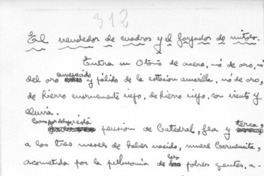 312
El vendedor de cuadros y el forjador de mitos.
Entra un Otoño de acero, no de oro, no
del oro amasado y pálido de la estación amarilla, no de oro,
de hierro enormemente viejo, de hierro viejo, con viento y
lluvia.
pensión de Catedral, fea y terca,
a los tres meses de haber nacido, muere Carmencita,
acometida por la pulmonía de los pobres gentes, a